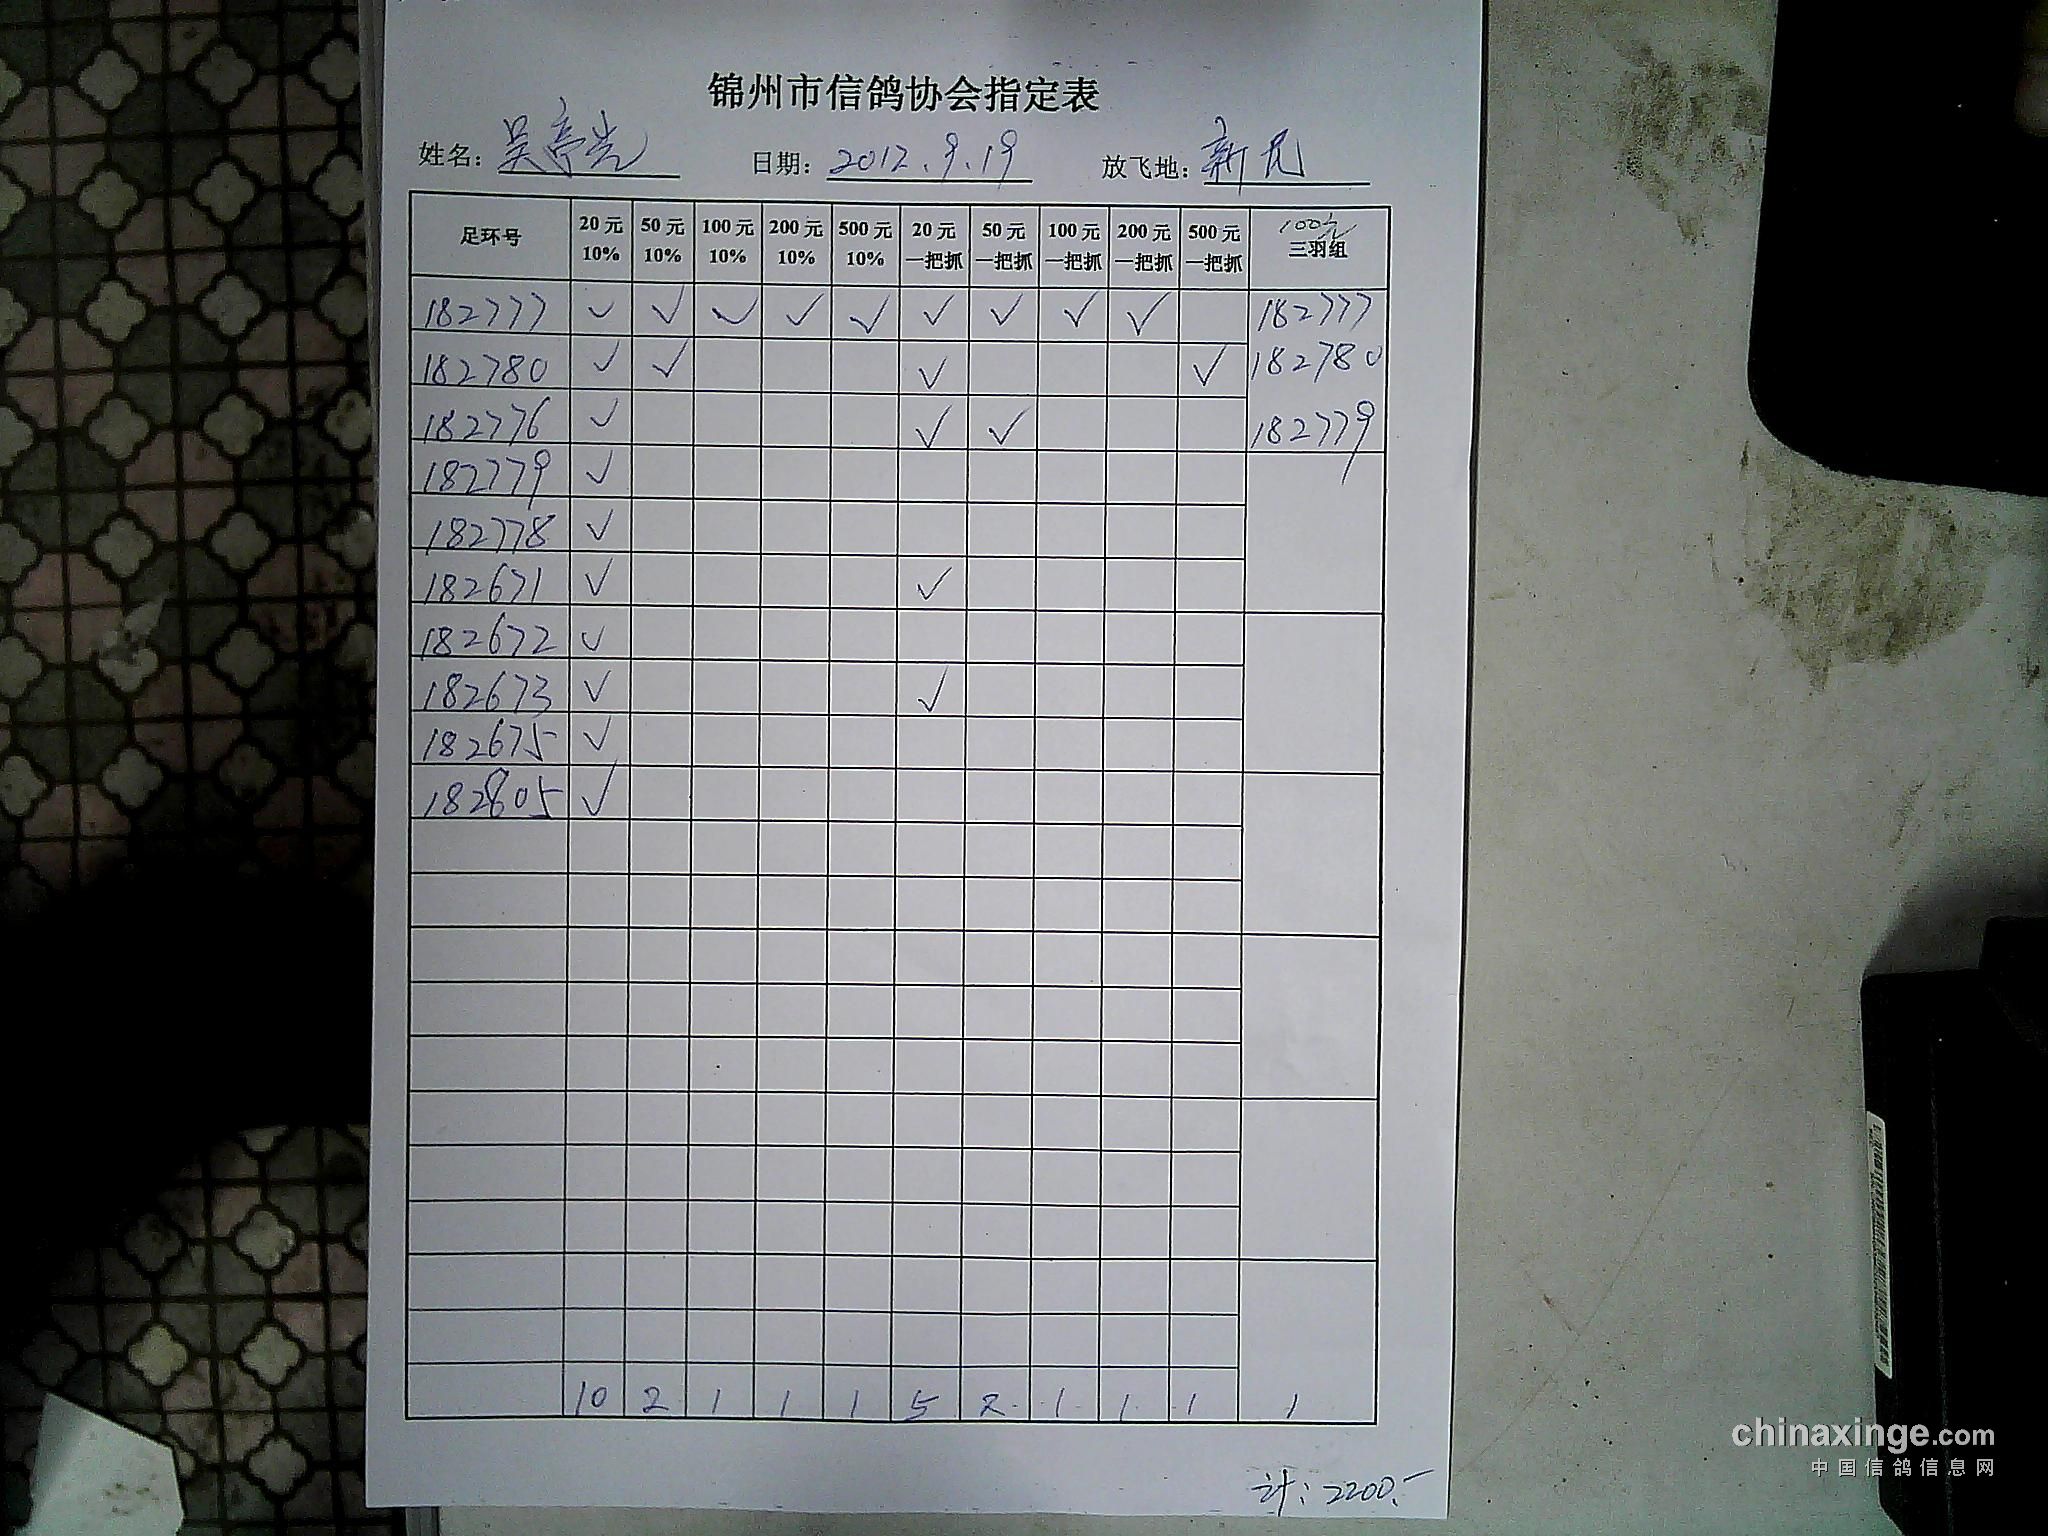 锦州市信鸽协会指定表
姓名: 吴亭光 日期: 2012.9.19 放飞地: 新民
足环号 20元 10% 50元 10% 100元 10% 200元 10% 500元 10% 20元 一把抓 50元 一把抓 100元 一把抓 200元 一把抓 500元 一把抓 100元 三羽组
182777 ✓ ✓ ✓ ✓ ✓ ✓ ✓ ✓ ✓ 182777
182780 ✓ ✓ ✓ ✓ 182780
182776 ✓ ✓ ✓ 182779
182779 ✓
182778 ✓
182671 ✓ ✓
182672 ✓
182673 ✓ ✓
182675 ✓
182805 ✓
10 2 1 1 1 5 2 1 1 1 1
计: 2200.-
chinaxinge.com
中国信鸽信息网